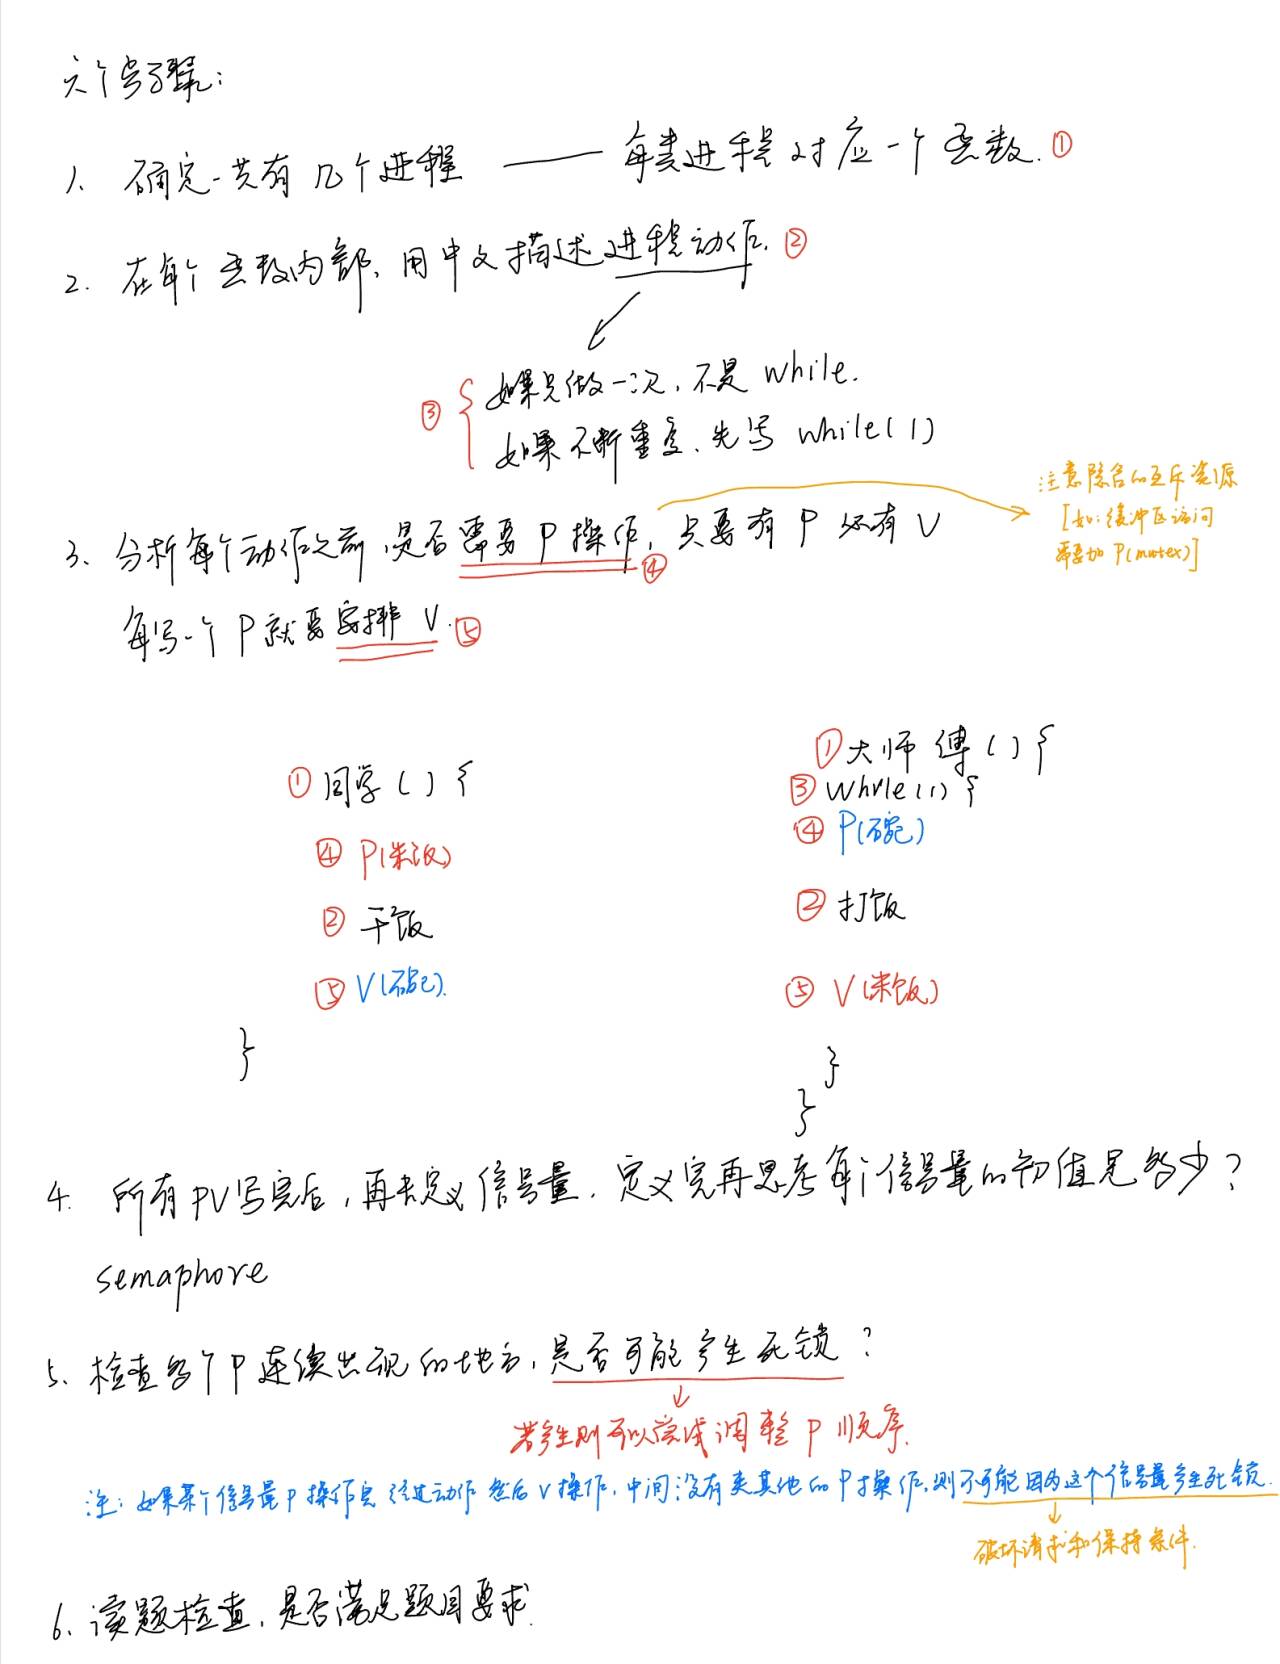 六个步骤:
1. 确定一共有几个进程 —— 每类进程对应一个函数. ①
2. 在每个函数内部, 用中文描述进程动作. ②
③ { 如果只做一次, 不是 while.
如果不断重复, 先写 while(1)
注意隐含的互斥资源
[如:缓冲区访问
需要加 P(mutex)]
3. 分析每个动作之前, 是否需要 P 操作, 只要有 P 还有 V
④
每写一个 P 就要安排 V. ⑤
① 同学 ( ) {
④ P(米饭)
② 干饭
⑤ V(碗).
}
① 大师傅 ( ) {
③ while(1) {
④ P(碗)
② 打饭
⑤ V(米饭)
}
}
4. 所有 PV 写完后, 再去定义信号量, 定义完再思考每个信号量的初值是多少?
semaphore
5. 检查多个 P 连续出现的地方, 是否可能产生死锁?
若产生则可以尝试调整 P 顺序.
注: 如果某个信号量 P 操作完 动作 然后 V 操作, 中间没有夹其他的 P 操作, 则不可能因为这个信号量产生死锁.
破坏请求和保持条件.
6. 读题检查, 是否满足题目要求.